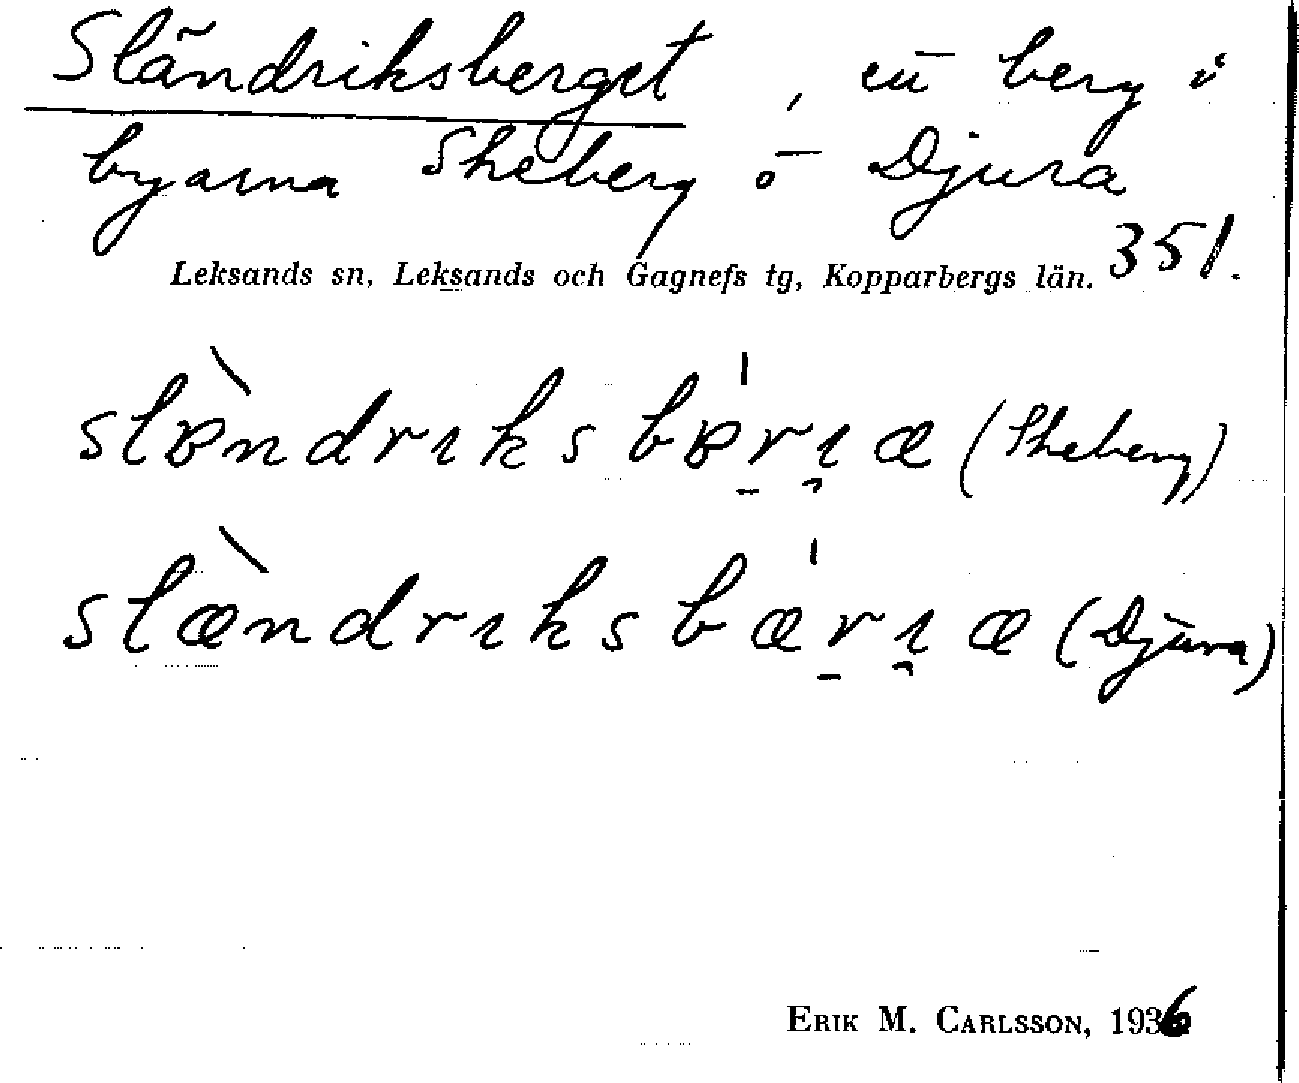 Sländriksberget, ett berg i
byarna Skeberg o Djura
351.
Leksands sn, Leksands och Gagnefs tg, Kopparbergs län.
slɐ̀ndrɩks bɐ́r̠ɩ̯æ (Skeberg)
slæ̀ndrɩks bǽr̠ɩ̯æ (Djura)
ERIK M. CARLSSON, 1936